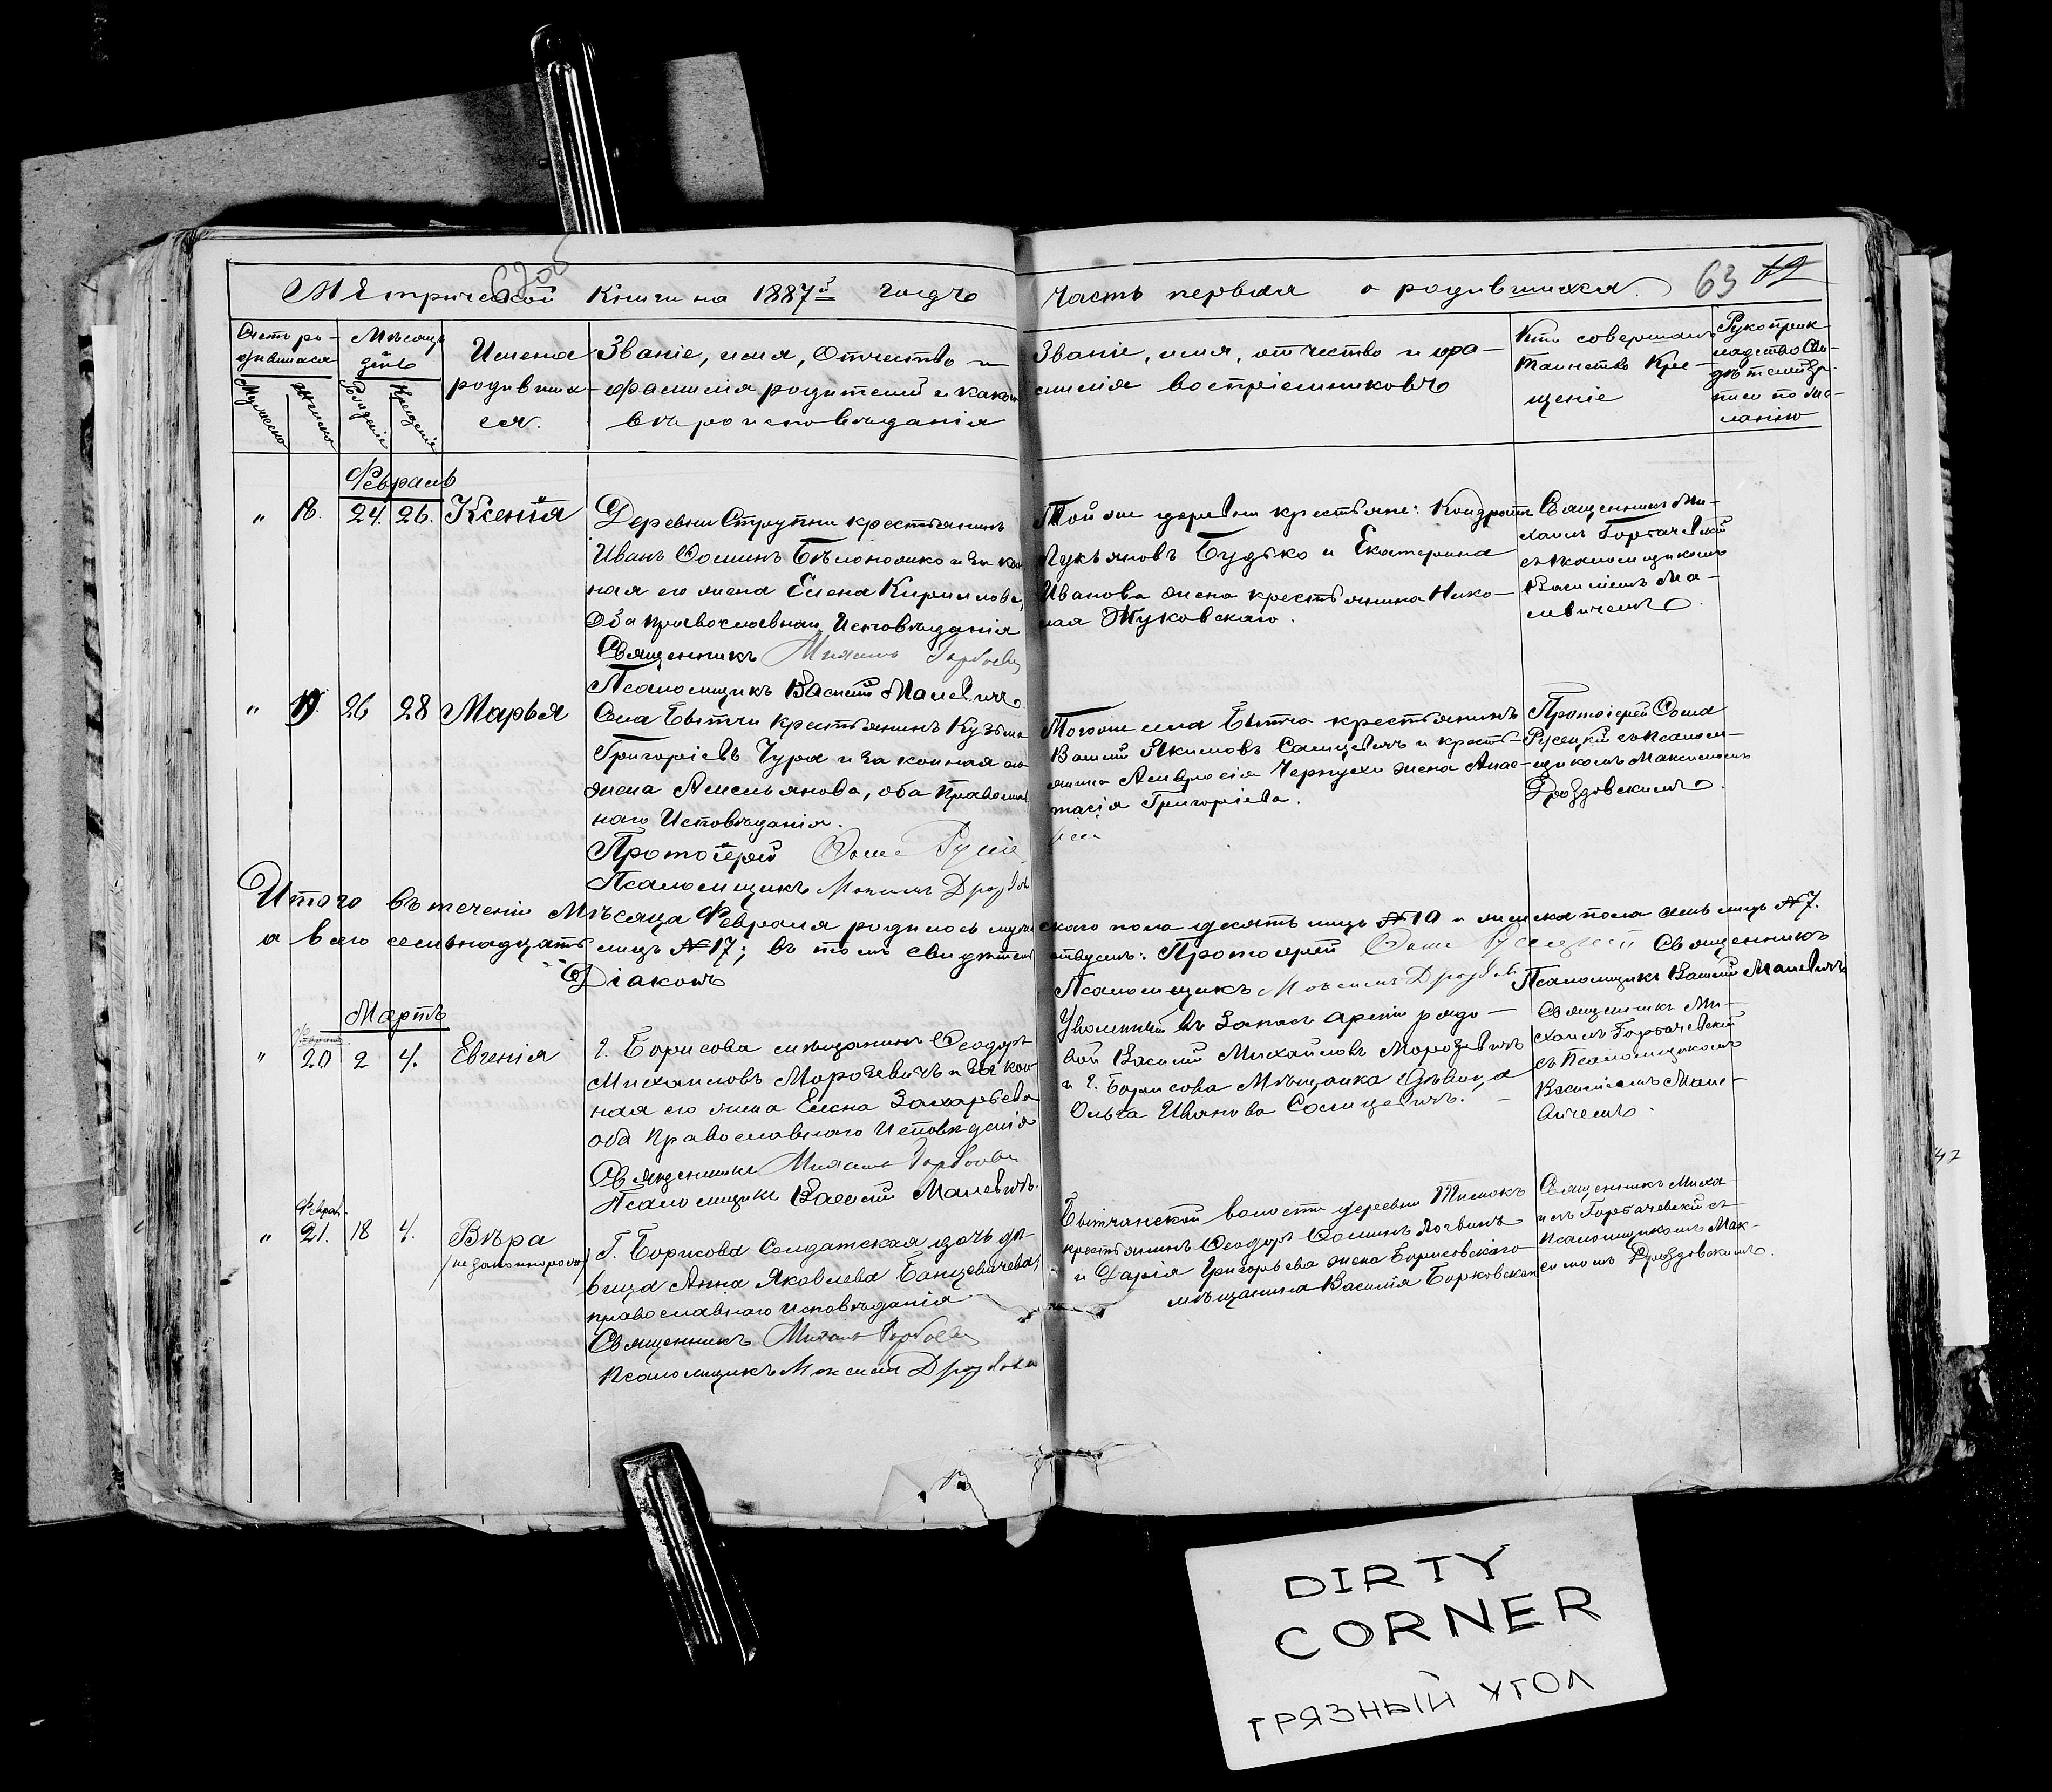 Метрической Книги на 1887й годъ
часть первая о родившихся.
63
Счетъ ро-
дившихся
Мужеска
Женска
Мѣсяцъ
день
Рожденія
Крещенія
Имена
родивших-
ся.
Званіе, имя, Отчество и
фамилія родителей и какого
вѣроисповѣданія
Званіе, имя, отчество и фа-
милія воспріемниковъ
Кто совершалъ
таинство Кре-
щеніе
Рукоприк-
ладство Сви-
дѣтелей
писи по же-
ланію
Февраль
" 18. 24. 26. Ксенія
Деревни Струпни крестьянинъ
Иванъ Ѳоминъ и закон-
ная его жена Елена Кириллова,
Оба православнаго Исповѣданія
Священникъ Михаилъ
Псаломщикъ Василій Малевичъ
Той же деревни крестьяне: Кондратъ
Лукьяновъ Будько и Екатерина
Иванова жена крестьянина Нико-
лая Жуковскаго.
Священникъ Ми-
хаилъ Горбачевскій
съ псаломщикомъ
Василіемъ Ма-
левичемъ.
" 19. 26 28 Марья
Села Бытчи крестьянинъ Кузьма
Григорьевъ Чура и законная его
жена Амельянова, оба Православ-
наго Исповѣданія.
Протоіерей Ѳома
Псаломщикъ Максимъ
Тогоже села Бытчи крестьянинъ
Василій Якимовъ и кресть-
янина Амвросія жена Анас-
тасія Григорьева.
Протоіерей Ѳома
Русецкій съ псалом-
щикомъ Максимомъ
Дроздовскимъ.
Итого въ теченіи Мѣсяца Февраля родилось мужескаго пола десять лицъ № 10 и женска пола семь лицъ № 7.
а всего семьнадцать лицъ № 17; въ томъ свидѣтельствуемъ: Протоіерей Ѳома Русецкій Священникъ
Діаконъ
Псаломщикъ Максимъ Псаломщикъ Василій Малевичъ
Мартъ
" 20 2 4. Евгенія
г. Борисова мѣщанинъ Ѳеодоръ
Михаиловъ Морозевичъ и закон-
ная его жена Елена Захарьева
оба Православнаго Исповѣданія
Священникъ Михаилъ
Псаломщикъ Василій Малевичъ.
Уволенный въ Запасъ арміи рядо-
вой Василій Михайловъ Морозевичъ
и г. Борисова Мѣщанка дѣвица
Ольга Иванова
Священникъ Ми-
хаилъ Горбачевскій
съ Псаломщикомъ
Василіемъ Мале-
вичемъ.
Февр.
" 21. 18 4. Вѣра
(незаконнорожд)
Г. Борисова Солдатская дочь дѣ-
вица Анна Яковлева Банцевичева,
православнаго исповѣданія
Священникъ Михаилъ
Псаломщикъ Максимъ
Бытчанской волости деревни
крестьянинъ Ѳеодоръ Ѳоминъ
и Дарія Григорьева жена Борисовскаго
мѣщанина Василія Борковскаго
Священникъ Миха-
илъ Горбачевскій съ
Псаломщикомъ Мак-
симомъ Дроздовскимъ.
47
DIRTY
CORNER
ГРЯЗНЫЙ УГОЛ